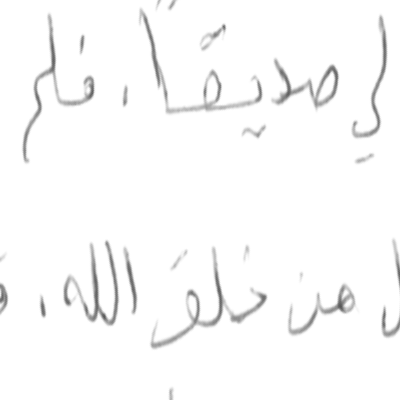 لِ صديقًا، فلم
من خلق الله،